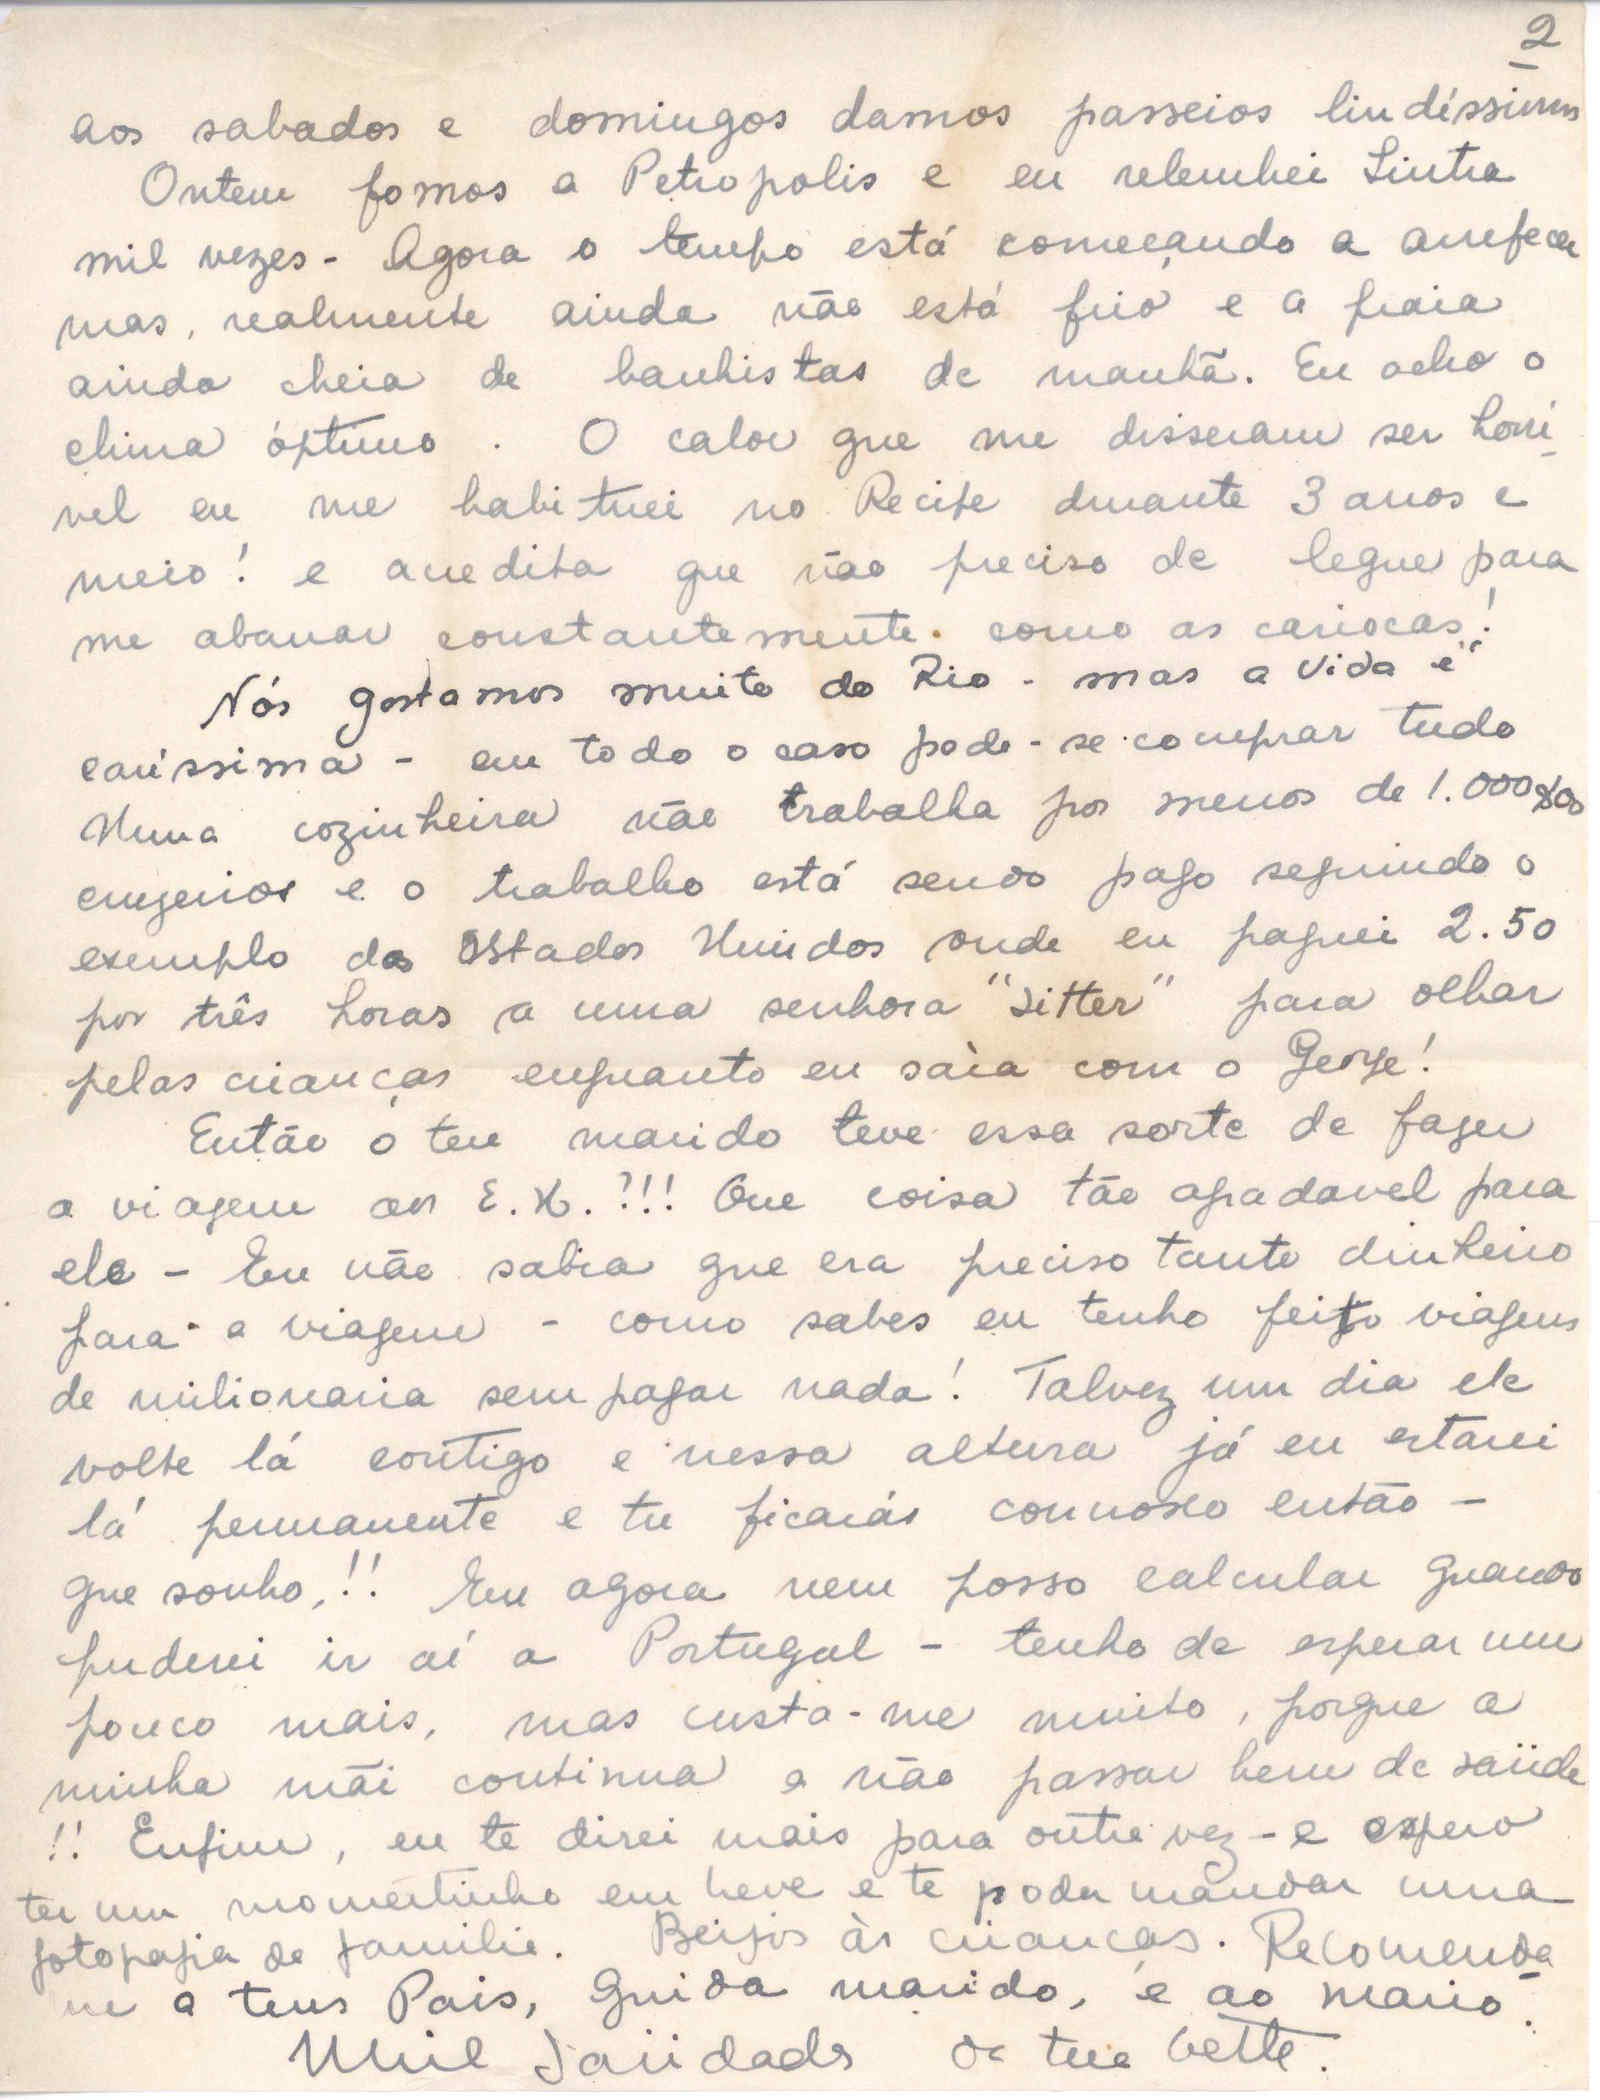 2
aos sabados e domingos damos passeios lindíssimos
Ontem fomos a Petropolis e eu relembrei Sintra
mil vezes - Agora o tempo está começando a arrefecer
mas, realmente ainda não está frio e a praia
ainda cheia de banhistas de manhã. Eu acho o
clima óptimo. O calor que me disseram ser horrí-
vel eu me habituei no Recife durante 3 anos e
meio! e acredita que não preciso de leque para
me abanar constantemente. como as cariocas!
Nós gostamos muito do Rio - mas a vida é
caríssima - em todo o caso pode-se comprar tudo
Numa cozinheira não trabalha por menos de 1.000$00
cruzeiros e o trabalho está sendo pago seguindo o
exemplo dos Estados Unidos onde eu paguei 2.50
por três horas a uma senhora "sitter" para olhar
pelas crianças enquanto eu saìa com o George!
Então o teu marido teve essa sorte de fazer
a viagem aos E.U.?!!! Que coisa tão agradavel para
ele - Eu não sabia que era preciso tanto dinheiro
para a viagem - como sabes eu tenho feito viagens
de milionaria sem pagar nada! Talvez um dia ele
volte lá contigo e nessa altura já eu estarei
lá permanente e tu ficarás connosco então -
que sonho,!! Eu agora nem posso calcular quando
puderei ir aí a Portugal - tenho de esperar um
pouco mais, mas custa-me muito, porque a
minha mãi continua a não passar bem de saüde
!! Enfim, eu te direi mais para outra vez - e espero
ter um momentinho em breve e te poder mandar uma
fotografia de familia. Beijos às crianças. Recomenda-
me a teus Pais, Guida marido, e ao Mario.
Mil Saüdades da tua Bette.